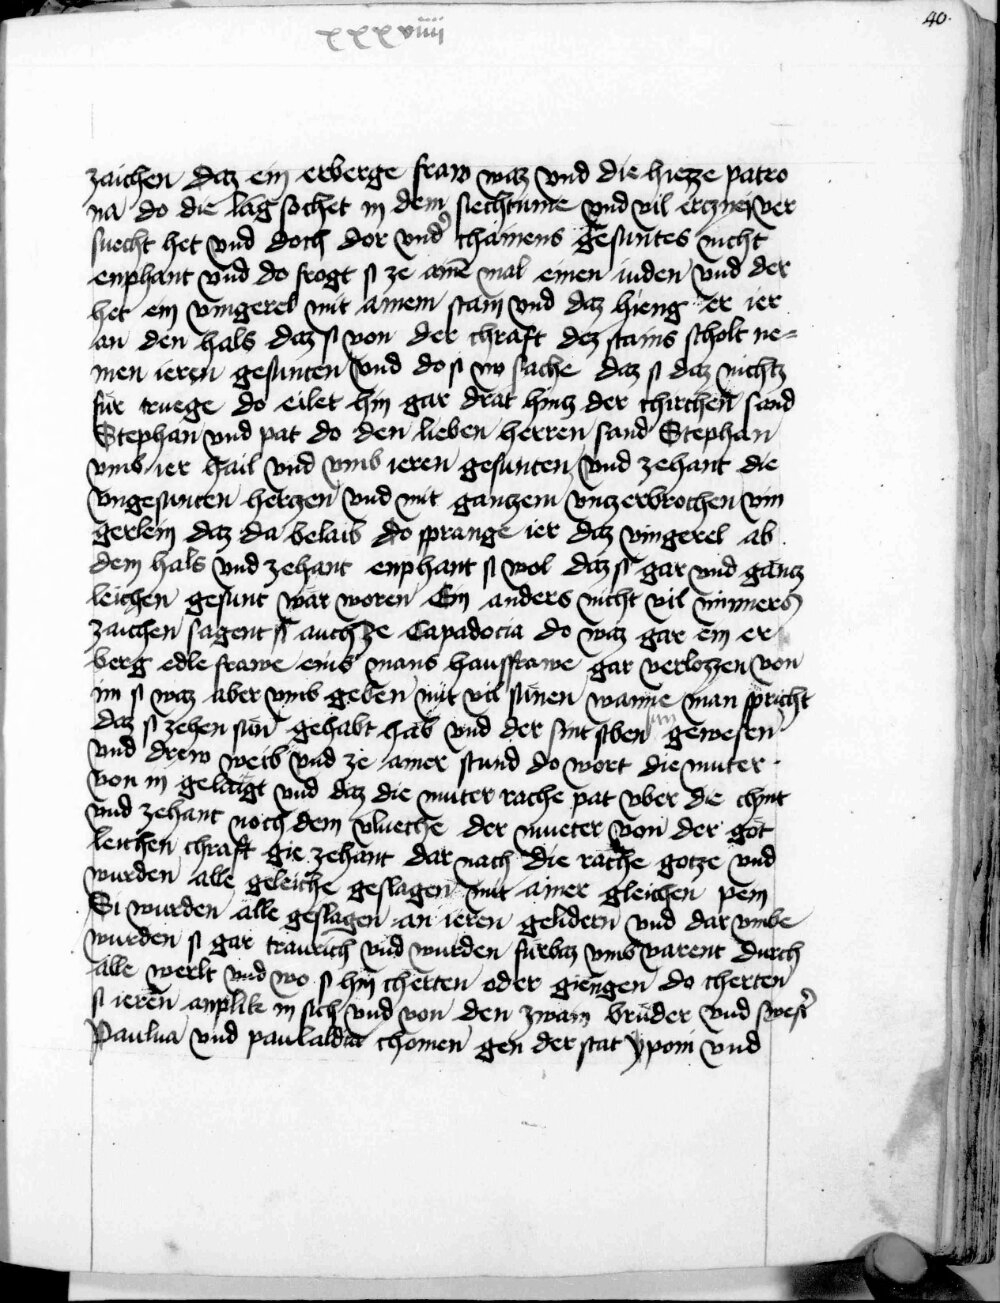 xxxviiii
40.
zaichen daz ein erberge fraw waz vnd die hiezze patro
na do die lag sochet in dem siechtume vnd vil erczney ver
suecht het vnd doch dor vnd' chainens gesuntes nicht
enphant vnd do frogt si ze aine mal einen iuden vnd der
het ein vingerel mit ainem stain vnd daz hieng er ier
an den hals daz si von der chraft dez stains scholt ne=
men ieren gesunten vnd do si no sache daz si daz nichtz
für truege do eilet hin gar drat hintz der chirchen sand
Stephan vnd pat do den lieben herren sand Stephan
vmb ier hail vnd vmb ieren gesunten vnd zehant die
vngesunten hertzen vnd mit gantzem vntzerbrochen vin
gerlein daz da belaib do sprange ier daz vingerel ab
dem hals vnd zehant enphant si wol daz si gar vnd gäntz
leichen gesunt wär woren Ein anders nicht vil minners
zaichen sagent si auch ze Capadocia do waz gar ein er
berg edle frawe eins mans hausfrawe gar verlozzen von
im si waz aber vmb geben mit vil sünen wanne man spricht
daz si zehen sün gehabt hab vnd der sint siben gewesen
vnd drew weib vnd ze ainer stund do wort die muter
von in gelaigt vnd daz die muter rache pat vber die chint
vnd zehant noch dem vlueche der mueter von der göt
leichen chraft gie zehant dar nach die räche gotze vnd
wurden alle geleiche geslagen mit ainer gleichen pein
Si wurden alle geslagen an ieren gelidern vnd dar vmbe
wurden si gar traurich vnd wurden fürbaz vmb varent durch
alle werlt vnd wo si hin cherten oder giengen do cherten
si ieren anplik in sich vnd von den zwain brüder vnd swest'
Paulua vnd paulaldia chomen gen der stat ypom vnd